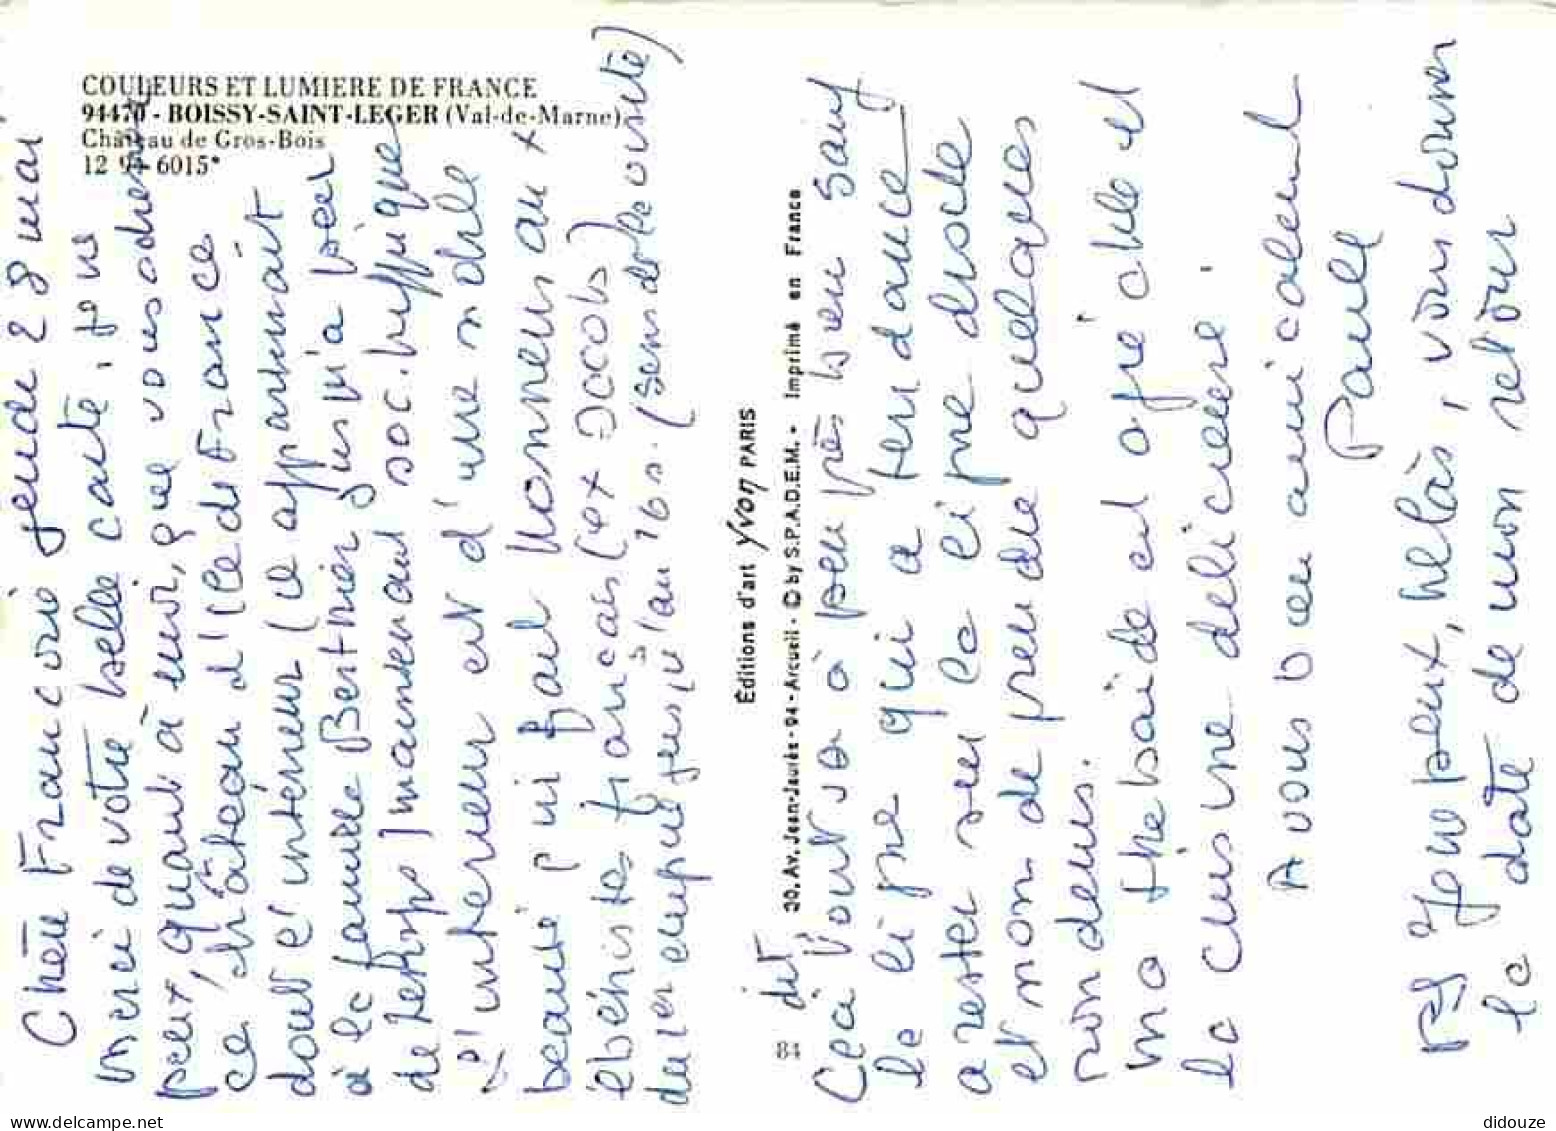 COULEURS ET LUMIERE DE FRANCE
94470 - BOISSY-SAINT-LEGER (Val-de-Marne)
Château de Gros-Bois
12 94 6015*
Chère Françoise jeudi 28 mai
merci de votre belle carte, je ne
peux, quant à moi, que vous adresser
ce château d'Ile de France
dont l'intérieur (il appartenait
à la famille Berthier jusqu'à peu
de temps) maintenant soc. hippique
l'intérieur est d'une noble
beauté qui fait honneur aux
ébénistes français (ex Jacob)
du 1er empire jusqu'au 16 s. (
Éditions d'art Yvon PARIS
20, Av. Jean-Jaurès - 94 - Arcueil - © by S.P.A.D.E.M. • Imprimé en France
84
Ceci dit
tout va à peu près bien sauf
la ligne qui a tendance
à rester sur la ligne droite
et non de prendre quelques
rondeurs.
Ma thébaïde est agréable et
la cuisine délicieuse.
A vous bien amicalement
Paule
PS Je ne peux, hélas, vous donner
la date de mon retour
didouze